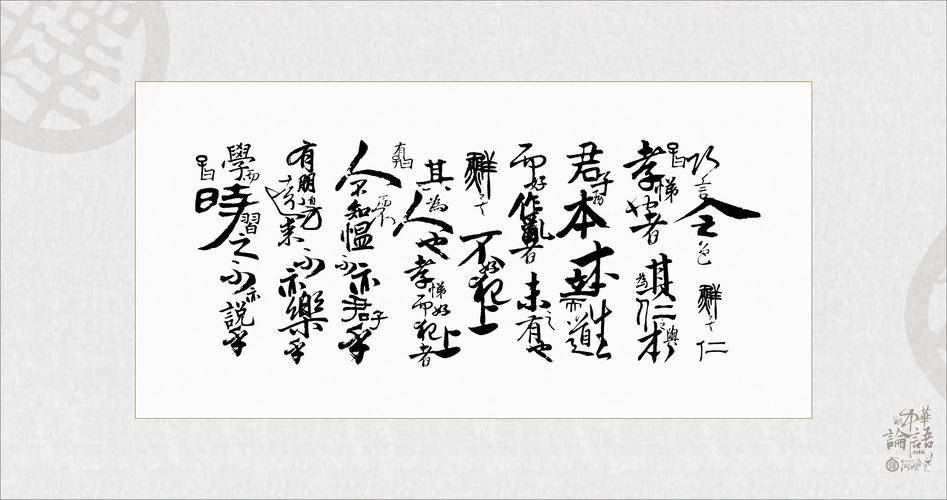 子曰學而時習之不亦說乎
有朋自遠方來不亦樂乎
人不知而不慍不亦君子乎
有子曰其為人也孝悌而好犯上者
鮮矣不好犯上
而好作亂者未之有也
君子務本本立而道生
孝悌也者其為仁之本與
子曰巧言令色鮮矣仁